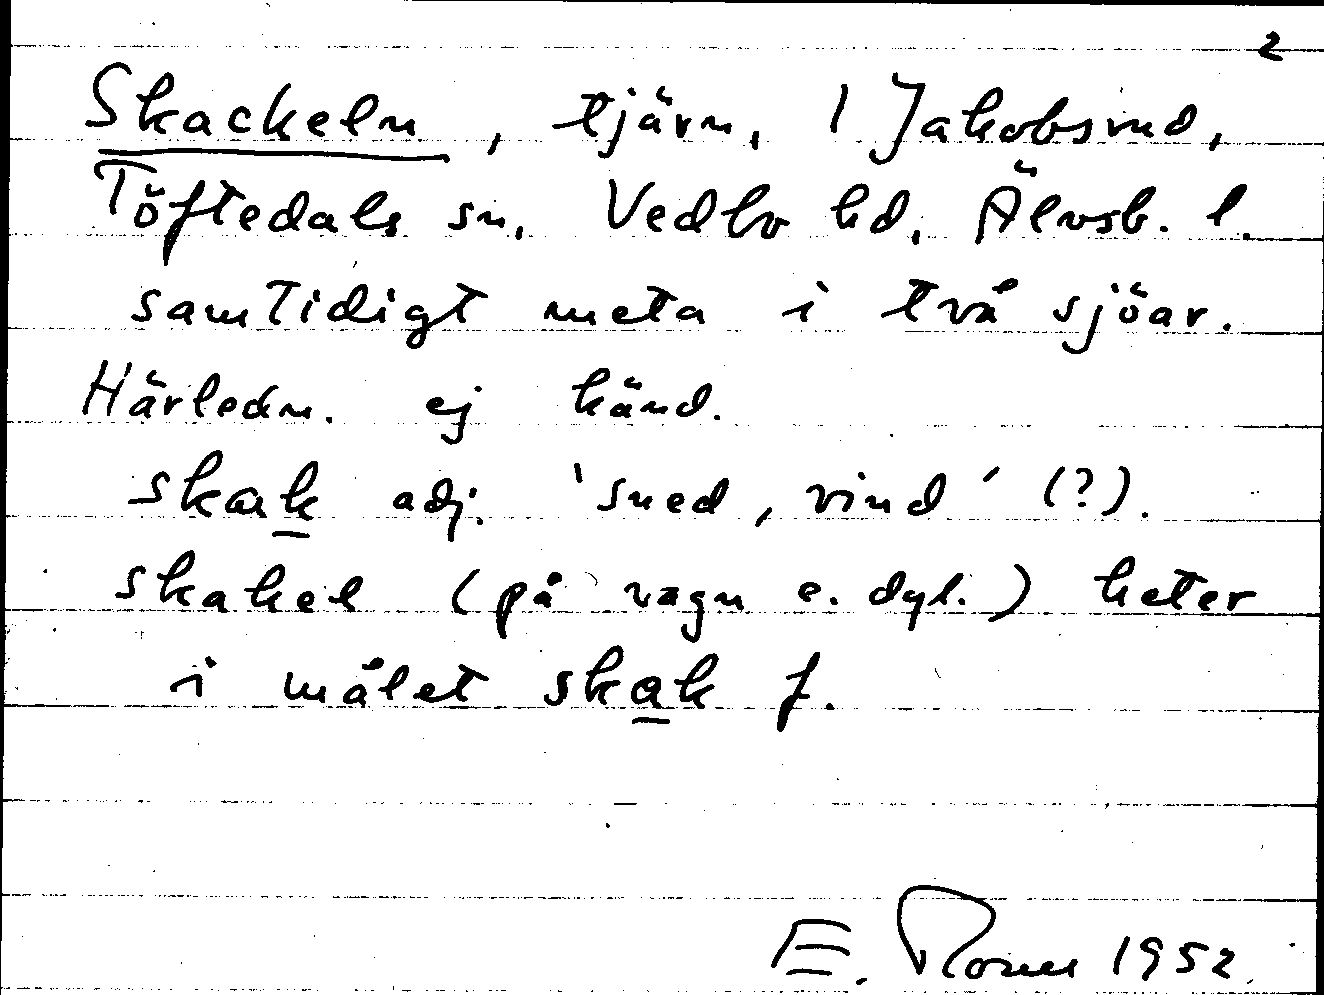 2
Skackeln, tjärn, 1 Jakobsrud,
Töftedals sn, Vedbo hd, Älvsb. l.
samtidigt meta i två sjöar.
Härledn. ej känd.
skak adj. 'sned, vind' (?).
skakel (på vagn e. dyl.) heter
i målet skak f.
E. Rome 1952.